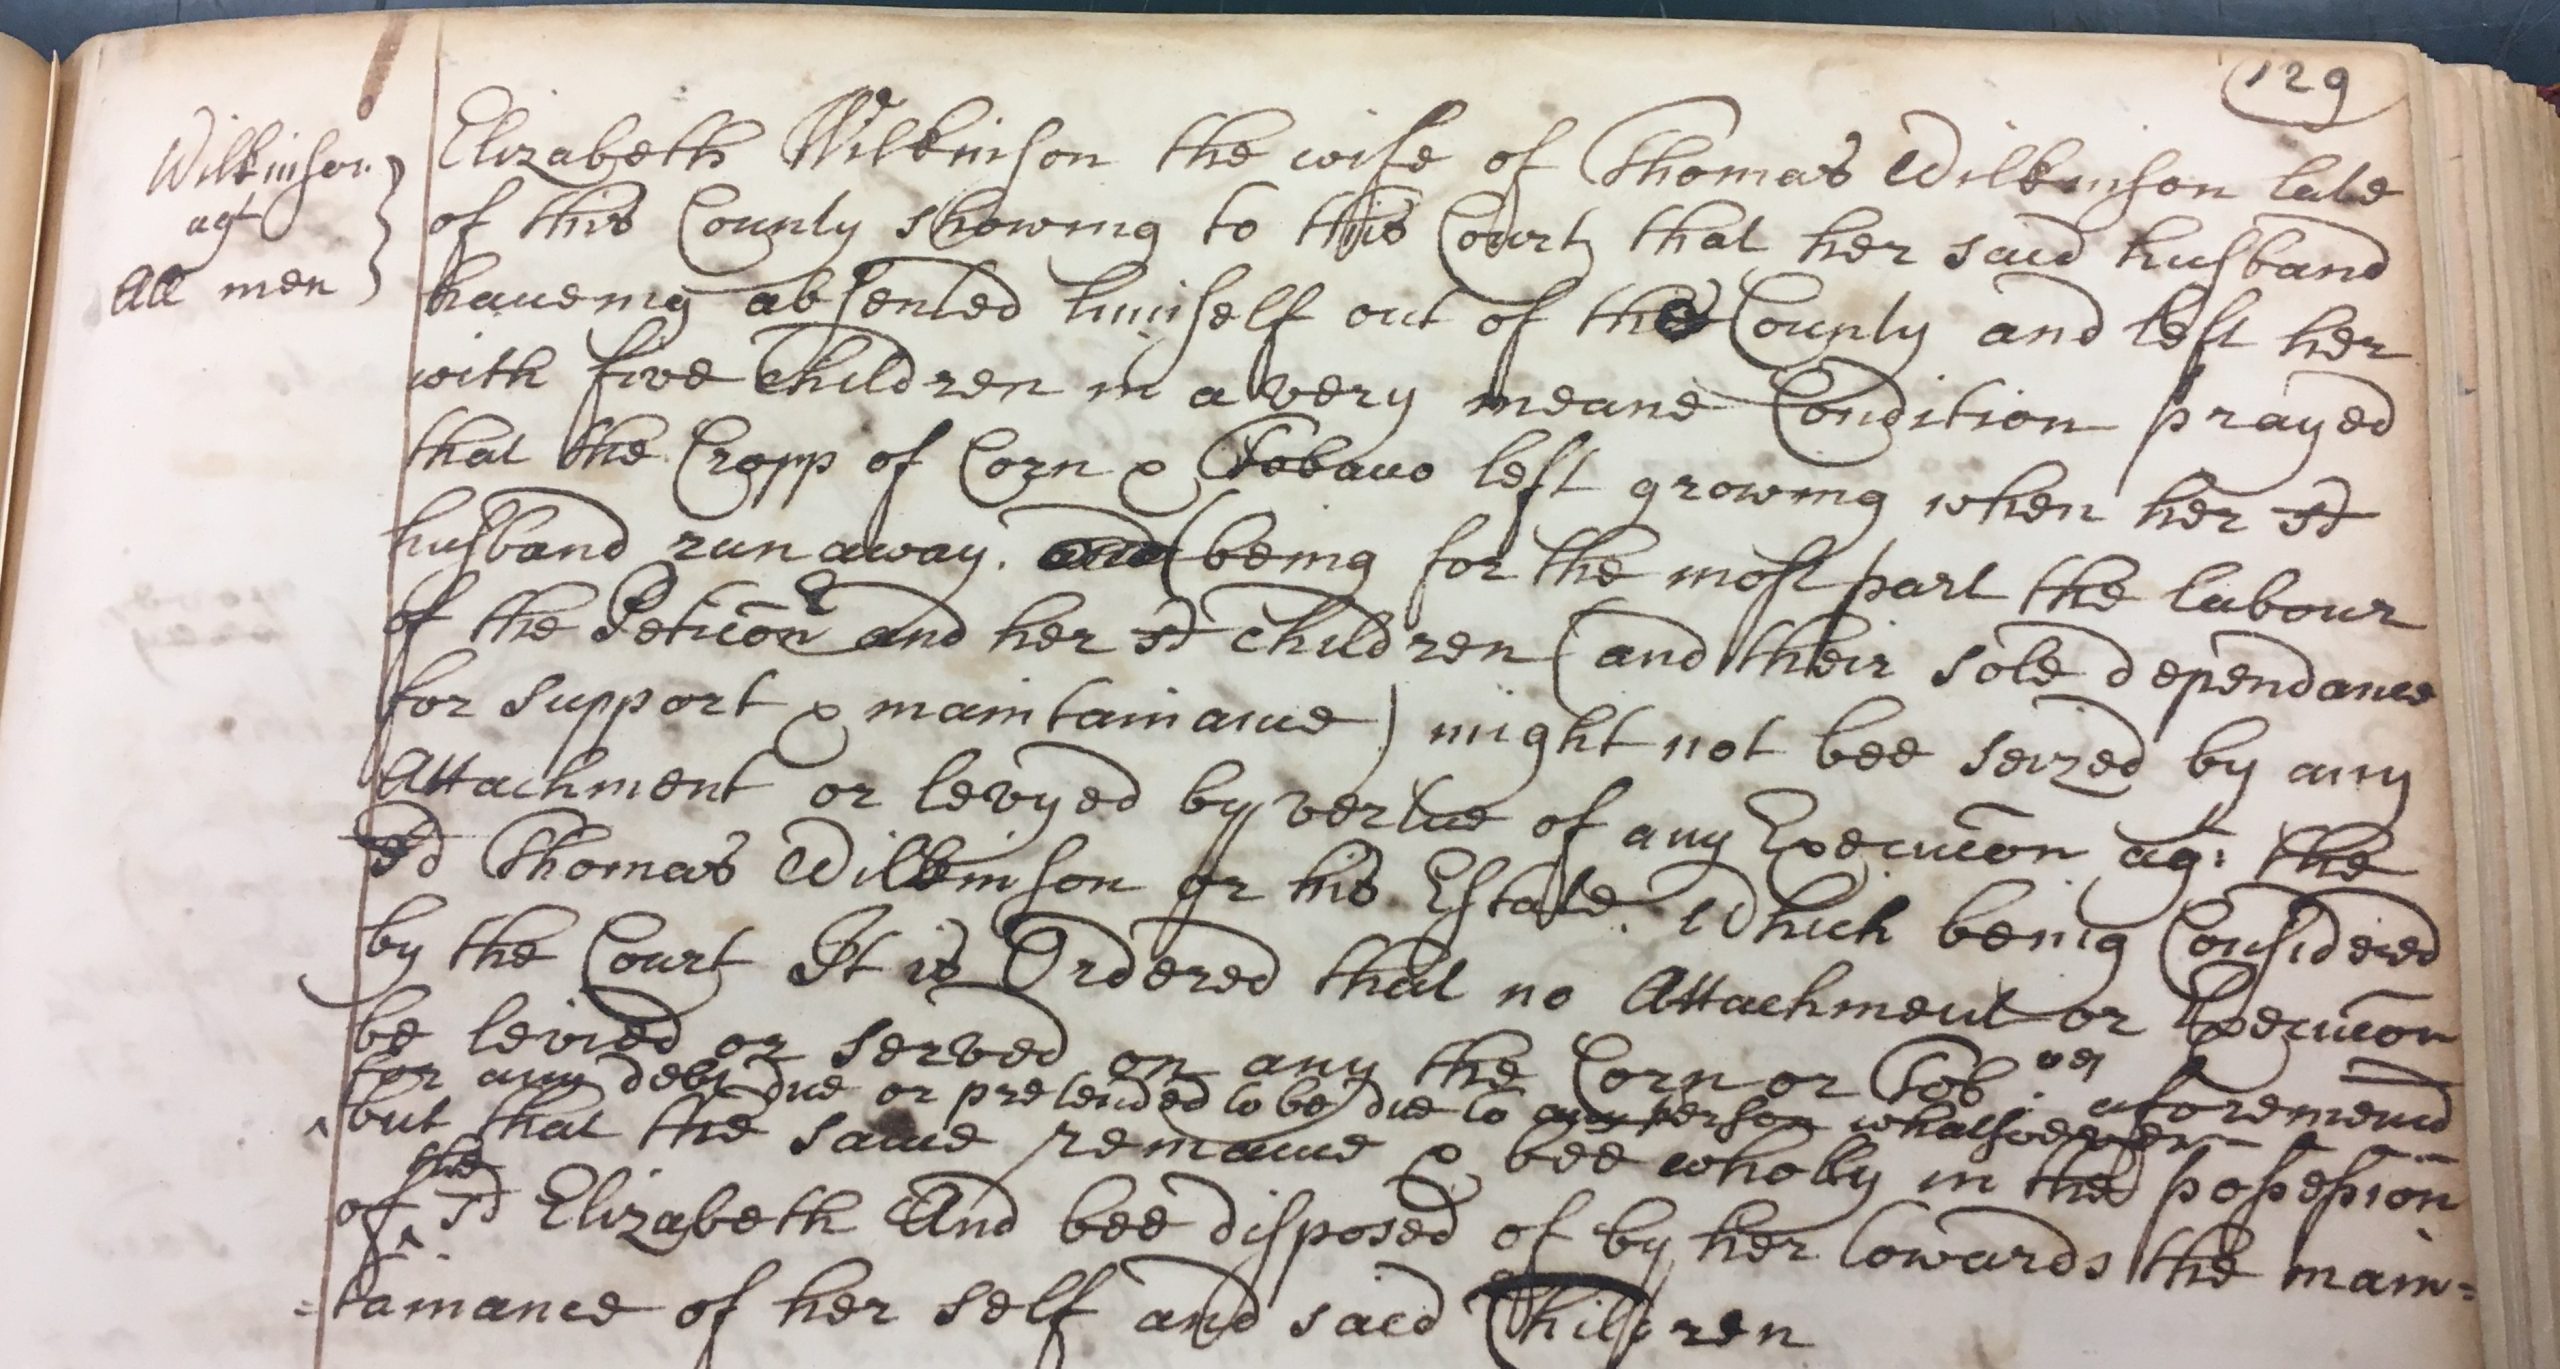 129
Wilkinson
agt
All men
Elizabeth Wilkinson the wife of Thomas Wilkinson late
of this County showing to this Court that her said husband
haueing absented himself out of the County and left her
with five Children in a very meane Condition prayed
that the Cropp of Corn & Tobacco left growing when her sd
husband run away. (being for the most part the labour
of the Peticonr and her sd children (and their sole dependance
for support & maintainance) might not bee seized by any
Attachment or levyed by vertue of any Execucon ag: the
sd Thomas Wilkinson or his Estate. Which being Considered
by the Court It is Ordered that no Attachment or Execucon
be levied or served on any the Corn or Tobcco aforemencd
for any debt due or pretended to be due to any person whatsoever
but that the same remaine & bee wholly in the possession
of the sd Elizabeth And bee disposed of by her towards the main=
=tainance of her self and said Children